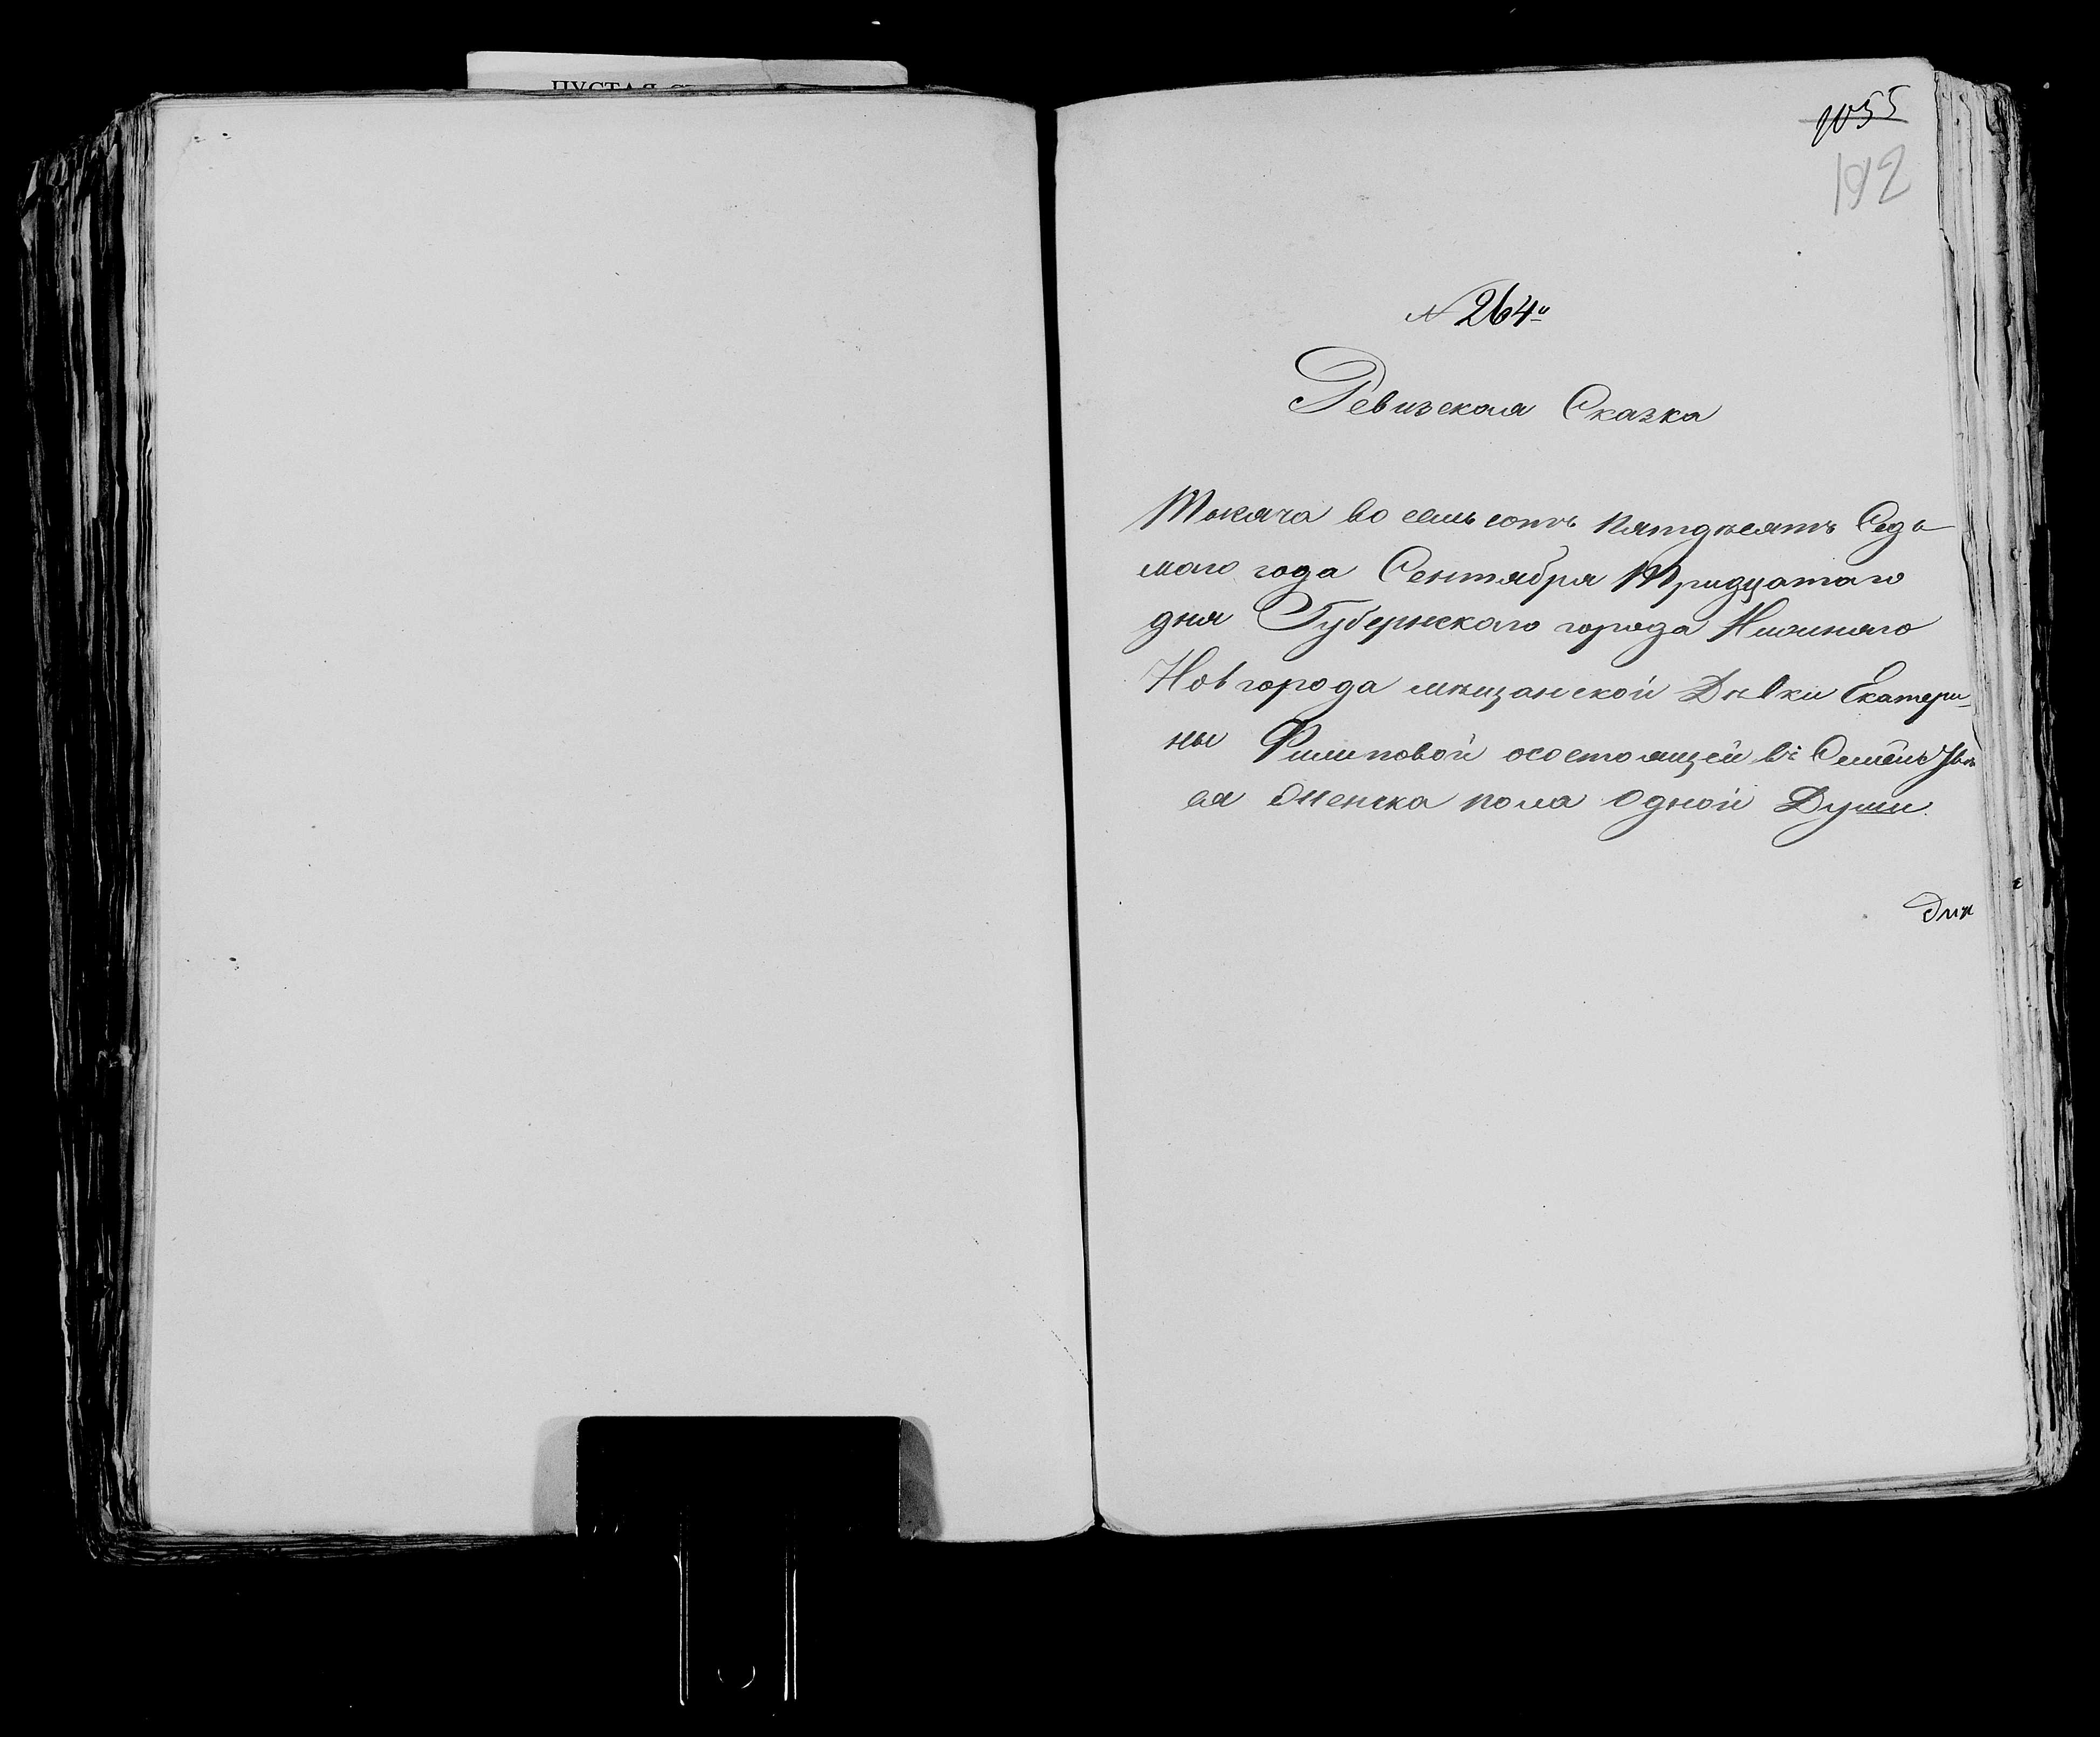 ПУСТАЯ
1055
192
№ 264й
Ревизская Сказка
Тысяча во семь сотъ пятдѣсятъ Седь
маго года Сентября Тридцатаго
дня Губернскаго города Нижняго
Новгорода мѣщанской Дѣвки Екатери-
ны Филиповой осостоящей въ Семейс
ея Женска пола Одной Души.